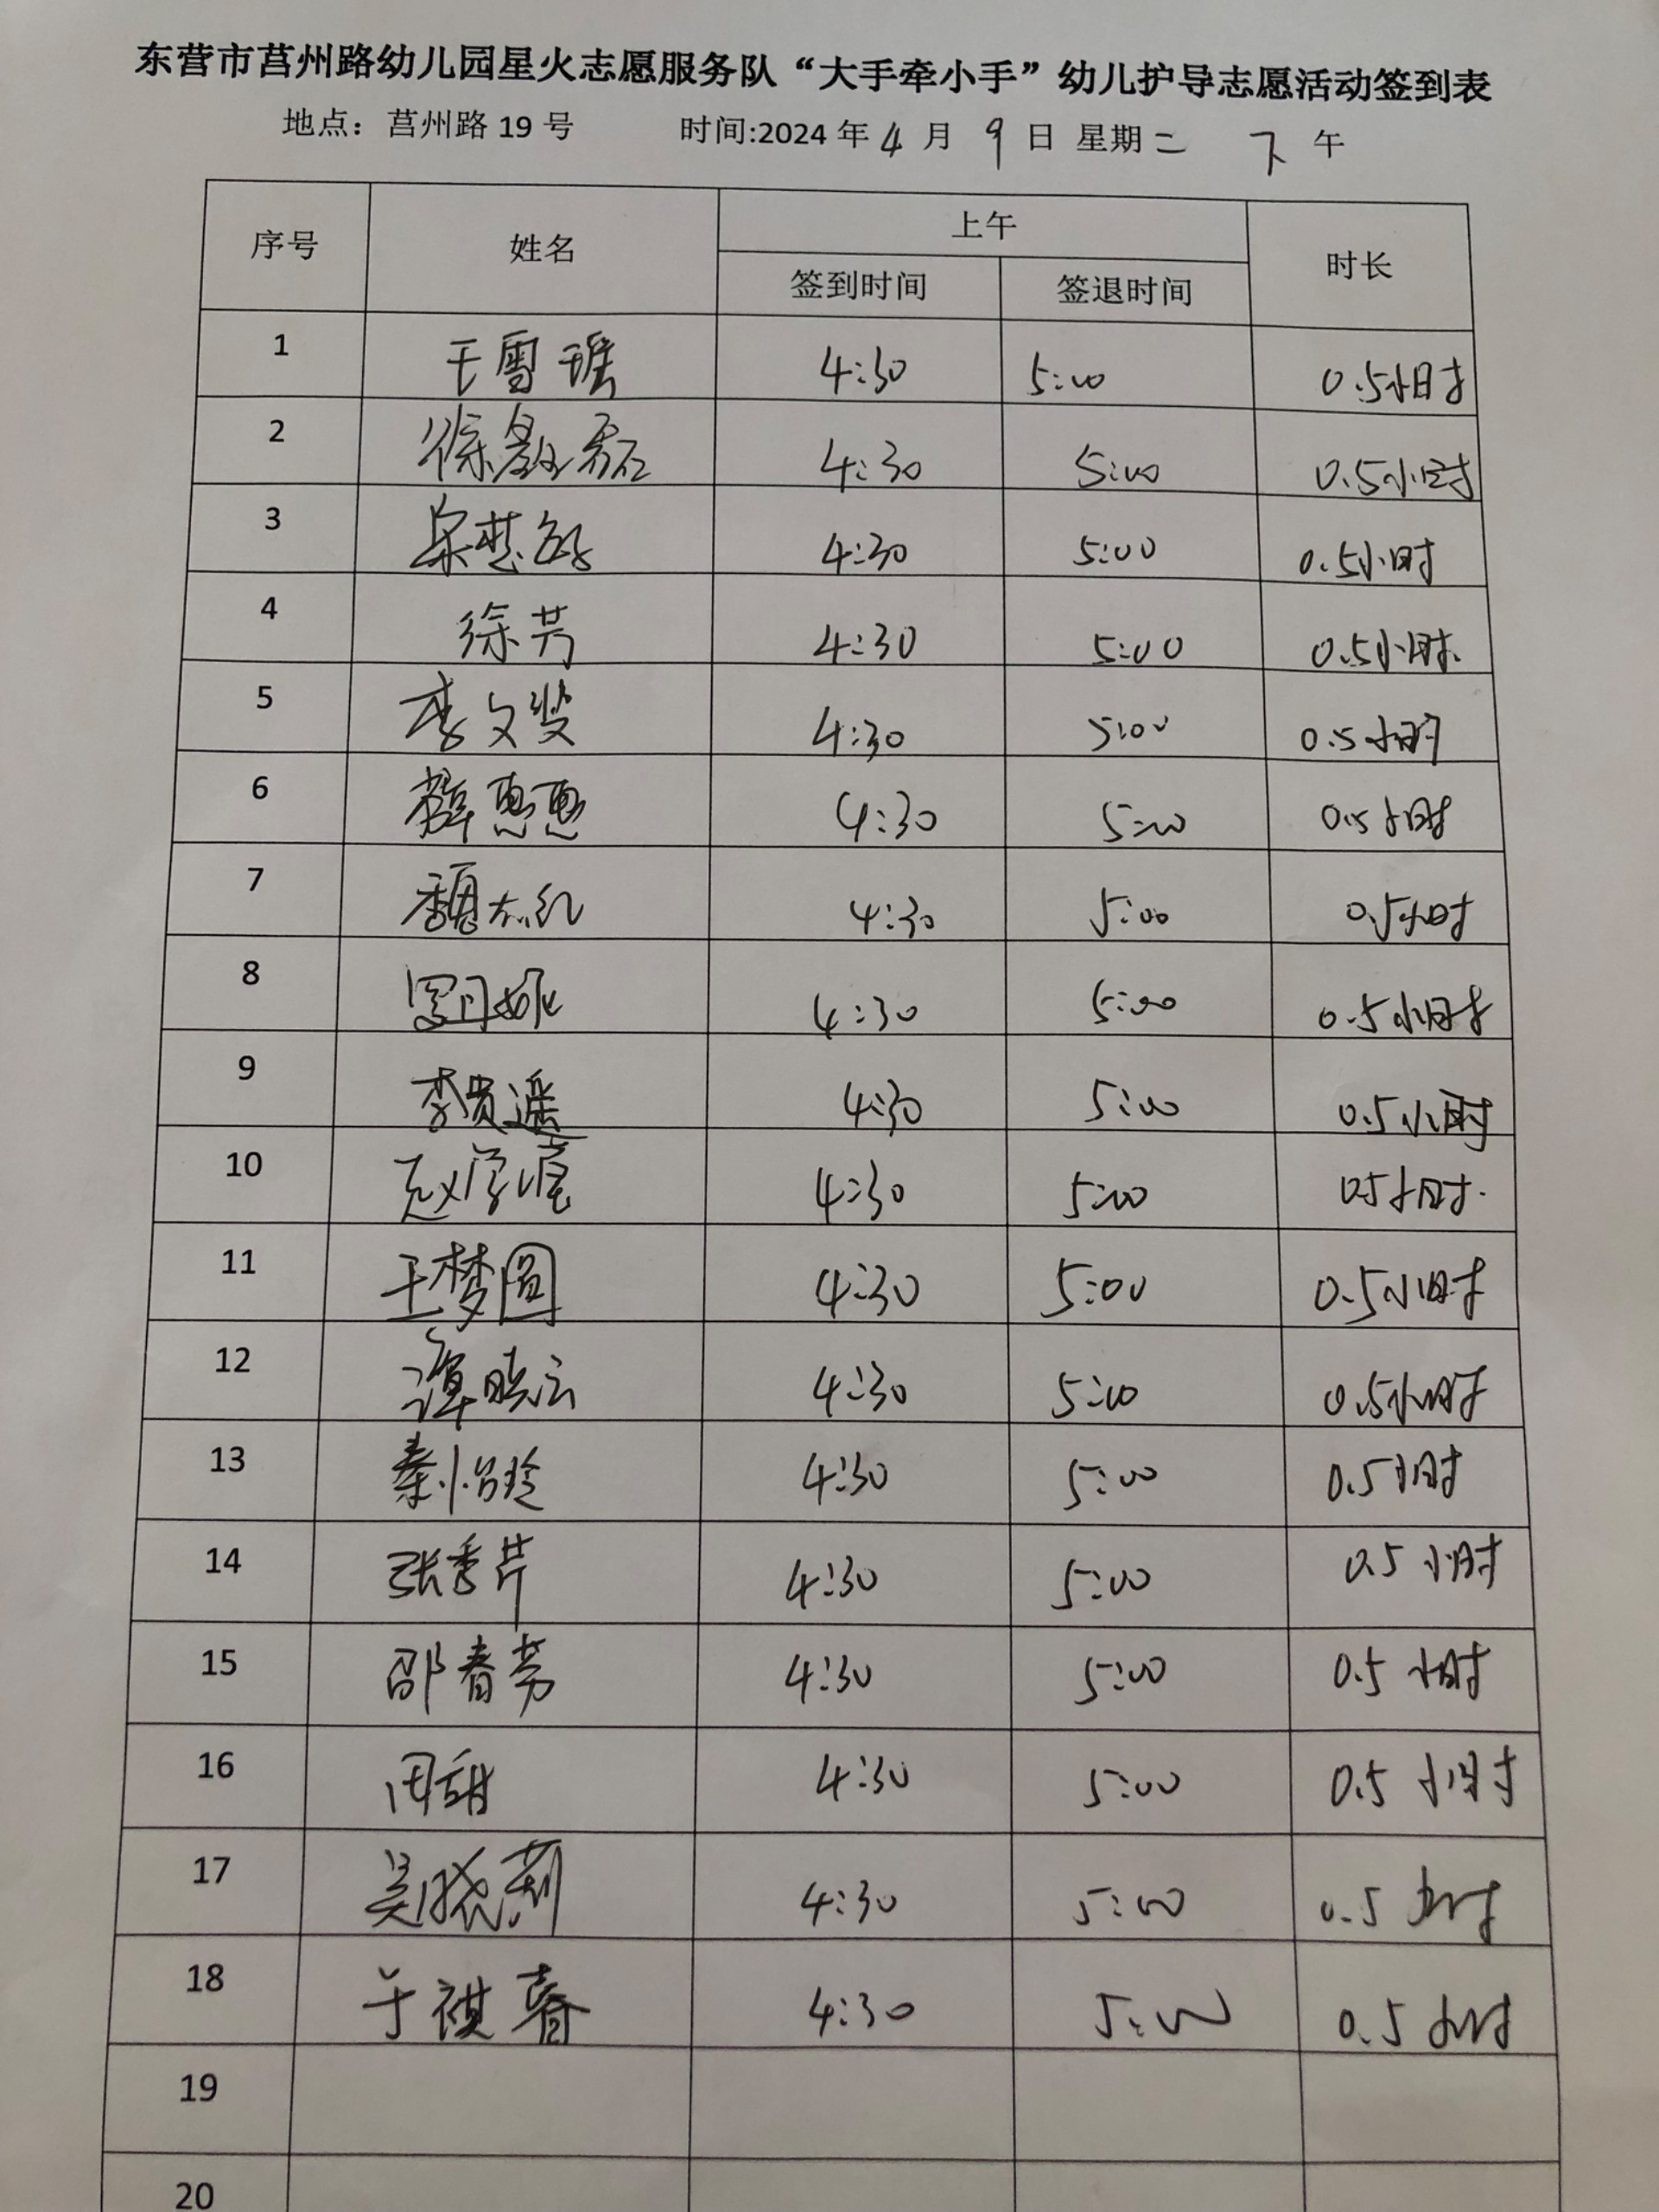 东营市莒州路幼儿园星火志愿服务队“大手牵小手”幼儿护导志愿活动签到表
地点：莒州路 19 号 时间:2024 年 4 月 9 日 星期二 下 午
序号 姓名 上午 时长
签到时间 签退时间
1 王雪瑶 4:30 5:00 0.5小时
2 徐 磊 4:30 5:00 0.5小时
3 4:30 5:00 0.5小时
4 徐芳 4:30 5:00 0.5小时
5 李文斐 4:30 5:00 0.5小时
6 薛惠惠 4:30 5:00 0.5小时
7 魏志红 4:30 5:00 0.5小时
8 4:30 5:00 0.5小时
9 李贵遥 4:30 5:00 0.5小时
10 赵 4:30 5:00 0.5小时
11 王梦圆 4:30 5:00 0.5小时
12 谭晓云 4:30 5:00 0.5小时
13 秦怡玲 4:30 5:00 0.5小时
14 张秀芹 4:30 5:00 0.5小时
15 邵春芳 4:30 5:00 0.5小时
16 周甜 4:30 5:00 0.5小时
17 吴晓莉 4:30 5:00 0.5小时
18 于祺春 4:30 5:00 0.5小时
19
20